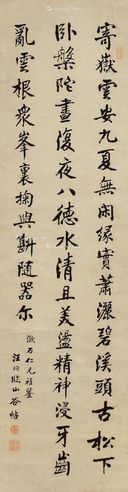 寄嶽雲安九夏無閑緣實蕭灑碧溪頭古松下
臥槃陀晝復夜八德水清且美盪精神浸牙齒
亂雲根衆峯裏掬與斟隨器尔
漱石仁兄雅鑒
汪洵臨山谷帖